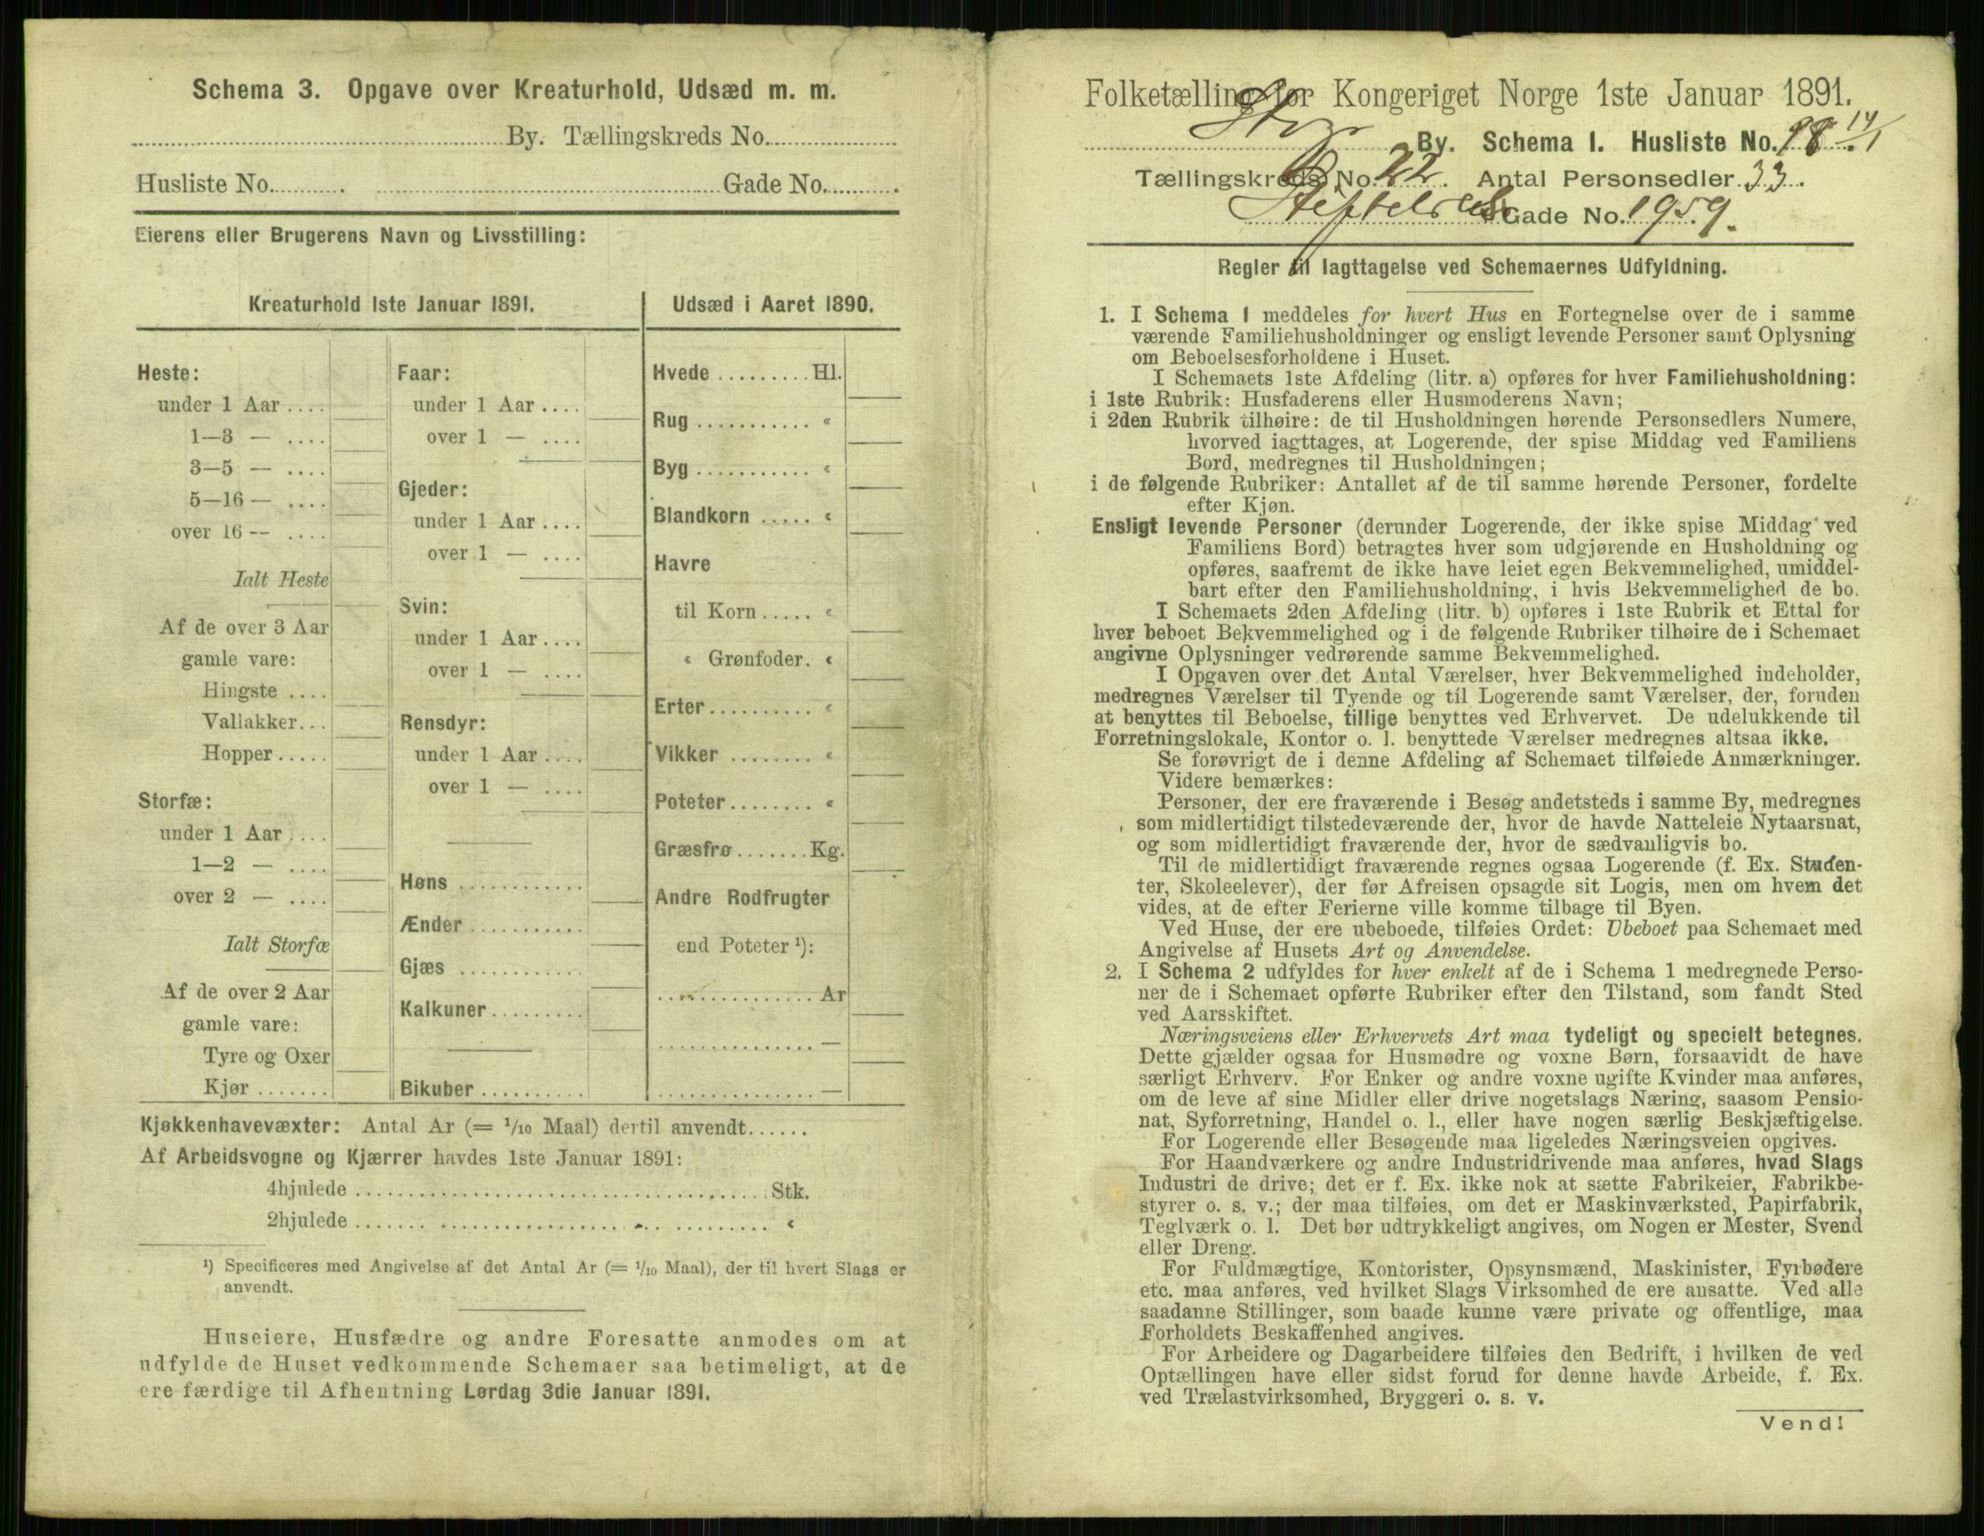 Schema 3. Opgave over Kreaturhold, Udsæd m. m.
By. Tællingskreds No.
Husliste No. Gade No.
Eierens eller Brugerens Navn og Livsstilling:
Kreaturhold 1ste Januar 1891.
Heste:
under 1 Aar
1—3 —
3—5 —
5—16 —
over 16 —
Ialt Heste
Af de over 3 Aar
gamle vare:
Hingste
Vallakker
Hopper
Storfæ:
under 1 Aar
1—2 —
over 2 —
Ialt Storfæ
Af de over 2 Aar
gamle vare:
Tyre og Oxer
Kjør
Faar:
under 1 Aar
over 1 —
Gjeder:
under 1 Aar
over 1 —
Svin:
under 1 Aar
over 1 —
Rensdyr:
under 1 Aar
over 1 —
Høns
Ænder
Gjæs
Kalkuner
Bikuber
Udsæd i Aaret 1890.
Hvede Hl.
Rug «
Byg «
Blandkorn «
Havre
til Korn «
« Grønfoder. «
Erter «
Vikker «
Poteter «
Græsfrø Kg.
Andre Rodfrugter
end Poteter ¹):
Ar
—
—
Kjøkkenhavevæxter: Antal Ar (= 1/10 Maal) dertil anvendt
Af Arbeidsvogne og Kjærrer havdes 1ste Januar 1891:
4hjulede Stk.
2hjulede «
¹) Specificeres med Angivelse af det Antal Ar (= 1/10 Maal), der til hvert Slags er
anvendt.
Huseiere, Husfædre og andre Foresatte anmodes om at
udfylde de Huset vedkommende Schemaer saa betimeligt, at de
ere færdige til Afhentning Lørdag 3die Januar 1891.
Folketælling for Kongeriget Norge 1ste Januar 1891.
By. Schema 1. Husliste No. 98 14/1
Tællingskreds No. 22. Antal Personsedler 33.
Gade No. 1959.
Regler til Iagttagelse ved Schemaernes Udfyldning.
1. I Schema 1 meddeles for hvert Hus en Fortegnelse over de i samme
værende Familiehusholdninger og ensligt levende Personer samt Oplysning
om Beboelsesforholdene i Huset.
I Schemaets 1ste Afdeling (litr. a) opføres for hver Familiehusholdning:
i 1ste Rubrik: Husfaderens eller Husmoderens Navn;
i 2den Rubrik tilhøire: de til Husholdningen hørende Personsedlers Numere,
hvorved iagttages, at Logerende, der spise Middag ved Familiens
Bord, medregnes til Husholdningen;
i de følgende Rubriker: Antallet af de til samme hørende Personer, fordelte
efter Kjøn.
Ensligt levende Personer (derunder Logerende, der ikke spise Middag ved
Familiens Bord) betragtes hver som udgjørende en Husholdning og
opføres, saafremt de ikke have leiet egen Bekvemmelighed, umiddel-
bart efter den Familiehusholdning, i hvis Bekvemmelighed de bo.
I Schemaets 2den Afdeling (litr. b) opføres i 1ste Rubrik et Ettal for
hver beboet Bekvemmelighed og i de følgende Rubriker tilhøire de i Schemaet
angivne Oplysninger vedrørende samme Bekvemmelighed.
I Opgaven over det Antal Værelser, hver Bekvemmelighed indeholder,
medregnes Værelser til Tyende og til Logerende samt Værelser, der, foruden
at benyttes til Beboelse, tillige benyttes ved Erhvervet. De udelukkende til
Forretningslokale, Kontor o. l. benyttede Værelser medregnes altsaa ikke.
Se forøvrigt de i denne Afdeling af Schemaet tilføiede Anmærkninger.
Videre bemærkes:
Personer, der ere fraværende i Besøg andetsteds i samme By, medregnes
som midlertidigt tilstedeværende der, hvor de havde Natteleie Nytaarsnat,
og som midlertidigt fraværende der, hvor de sædvanligvis bo.
Til de midlertidigt fraværende regnes ogsaa Logerende (f. Ex. Studen-
ter, Skoleelever), der før Afreisen opsagde sit Logis, men om hvem det
vides, at de efter Ferierne ville komme tilbage til Byen.
Ved Huse, der ere ubeboede, tilføies Ordet: Ubeboet paa Schemaet med
Angivelse af Husets Art og Anvendelse.
2. I Schema 2 udfyldes for hver enkelt af de i Schema 1 medregnede Perso-
ner de i Schemaet opførte Rubriker efter den Tilstand, som fandt Sted
ved Aarsskiftet.
Næringsveiens eller Erhvervets Art maa tydeligt og specielt betegnes.
Dette gjælder ogsaa for Husmødre og voxne Børn, forsaavidt de have
særligt Erhverv. For Enker og andre voxne ugifte Kvinder maa anføres,
om de leve af sine Midler eller drive nogetslags Næring, saasom Pensio-
nat, Syforretning, Handel o. l., eller have nogen særlig Beskjæftigelse.
For Logerende eller Besøgende maa ligeledes Næringsveien opgives.
For Haandværkere og andre Industridrivende maa anføres, hvad Slags
Industri de drive; det er f. Ex. ikke nok at sætte Fabrikeier, Fabrikbe-
styrer o. s. v.; der maa tilføies, om det er Maskinværksted, Papirfabrik,
Teglværk o. l. Det bør udtrykkeligt angives, om Nogen er Mester, Svend
eller Dreng.
For Fuldmægtige, Kontorister, Opsynsmænd, Maskinister, Fyrbødere
etc. maa anføres, ved hvilket Slags Virksomhed de ere ansatte. Ved alle
saadanne Stillinger, som baade kunne være private og offentlige, maa
Forholdets Beskaffenhed angives.
For Arbeidere og Dagarbeidere tilføies den Bedrift, i hvilken de ved
Optællingen have eller sidst forud for denne havde Arbeide, f. Ex.
ved Trælastvirksomhed, Bryggeri o. s. v.
Vend!